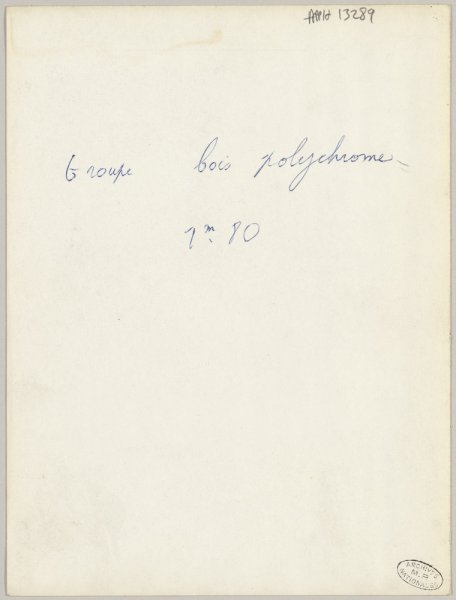 APH 13289
Groupe bois polychrome
1m. 80
ARCHIVES
NATIONALES